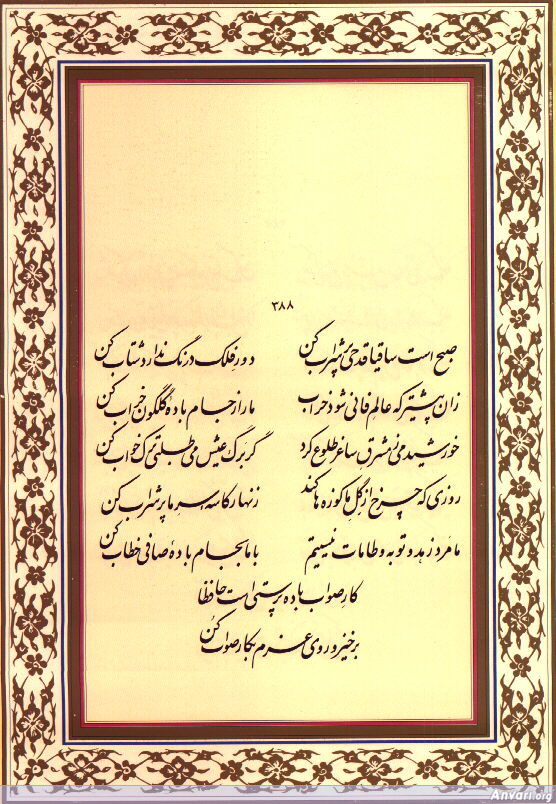 ۳۸۸
صبح است ساقیا قدحی پر شراب کن دور فلک درنگ ندارد شتاب کن
زان پیشتر که عالم فانی شود خراب ما را ز جام باده گلگون خراب کن
خورشید می ز مشرق ساغر طلوع کرد گر برگ عیش می طلبی ترک خواب کن
روزی که چرخ از گل ما کوزه ها کند زنهار کاسه سر ما پر شراب کن
ما مرد زهد و توبه و طامات نیستیم با ما به جام باده صافی خطاب کن
کار صواب باده پرستی است حافظا
برخیز و روی عزم به کار صواب کن
Anvari.org